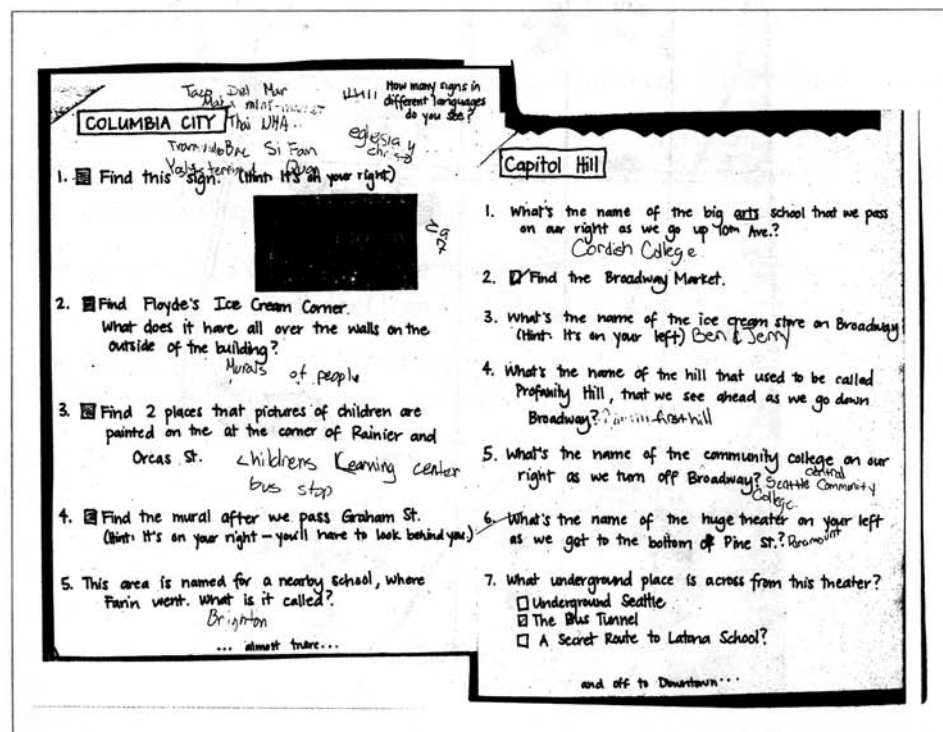 How many signs in
different languages
do you see?
Taco Del Mar
mini-
Thai
COLUMBIA CITY
Si Fan
eglesia y
1. Find this sign. (Hint: It's on your right)
2. Find Floyde's Ice Cream Corner.
What does it have all over the walls on the
outside of the building?
Murals of people
3. Find 2 places that pictures of children are
painted on the at the corner of Rainier and
Orcas St.
childrens Learning center
bus stop
4. Find the mural after we pass Graham St.
(Hint: It's on your right – you'll have to look behind you.)
5. This area is named for a nearby school, where
Farin went. What is it called?
Brighton
... almost there...
Capitol Hill
1. What's the name of the big arts school that we pass
on our right as we go up 10th Ave.?
Cordish College
2. Find the Broadway Market.
3. What's the name of the ice cream store on Broadway?
(Hint: It's on your left) Ben & Jerry
4. What's the name of the hill that used to be called
Profanity Hill, that we see ahead as we go down
Broadway? first hill
5. What's the name of the community college on our
right as we turn off Broadway? Seattle central Community
College
6. What's the name of the huge theater on your left
as we get to the bottom of Pine St.? Paramount
7. What underground place is across from this theater?
Underground Seattle
The Bus Tunnel
A Secret Route to Latona School?
and off to Downtown...